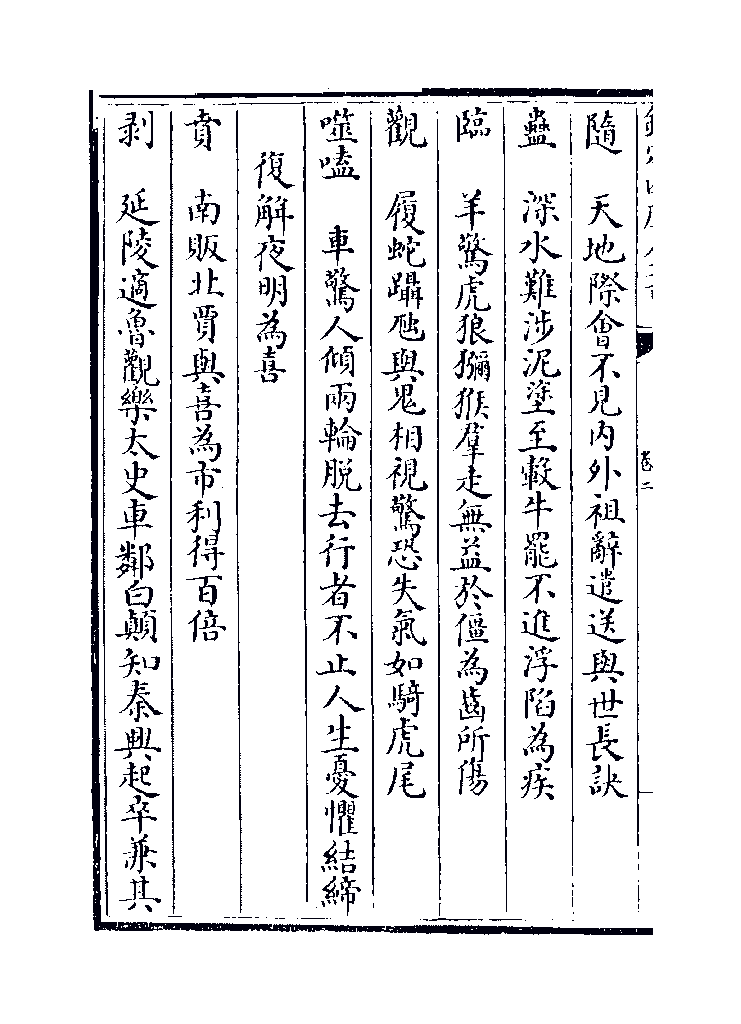 卷二
隨　天地際會不見内外祖辭遣送與世長訣
蠱　深水難涉泥塗至轂牛罷不進浮陷為疾
臨　羊驚虎狼獼猴羣走無益於僵為齒所傷
觀　履蛇躡虺與鬼相視驚恐失氣如騎虎尾
噬嗑　車驚人傾兩輪脱去行者不止人生憂懼結締
復解夜明為喜
賁　南販北賈與喜為市利得百倍
剥　延陵適魯觀樂太史車鄰白顛知秦興起卒兼其